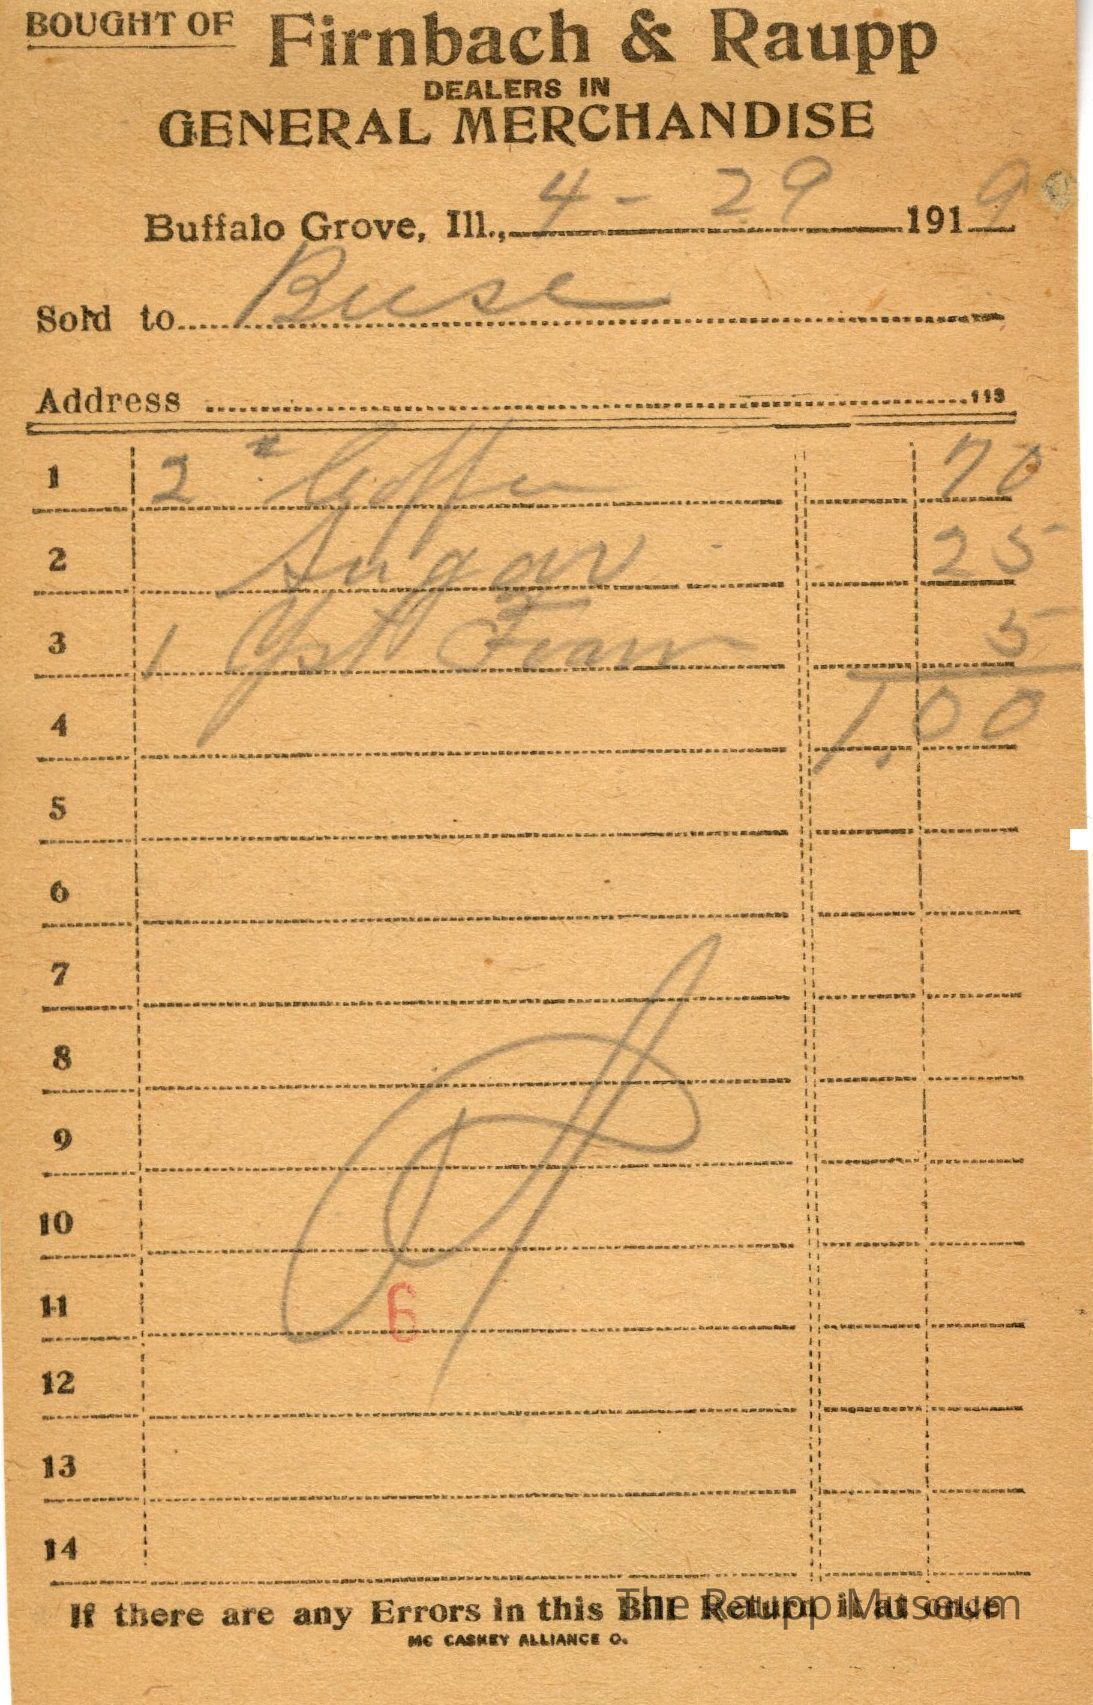 BOUGHT OF Firnbach & Raupp
DEALERS IN
GENERAL MERCHANDISE
Buffalo Grove, Ill., 4 - 29 1919
Sold to Buse
Address 113
1 2 # Coffee 70
2 Sugar 25
3 1 Yst Foam 5
4 1.00
5
6
7
8
9
10
6
11
12
13
14
If there are any Errors in this Bill Return it at once
The Raupp Museum
MC CASKEY ALLIANCE O.